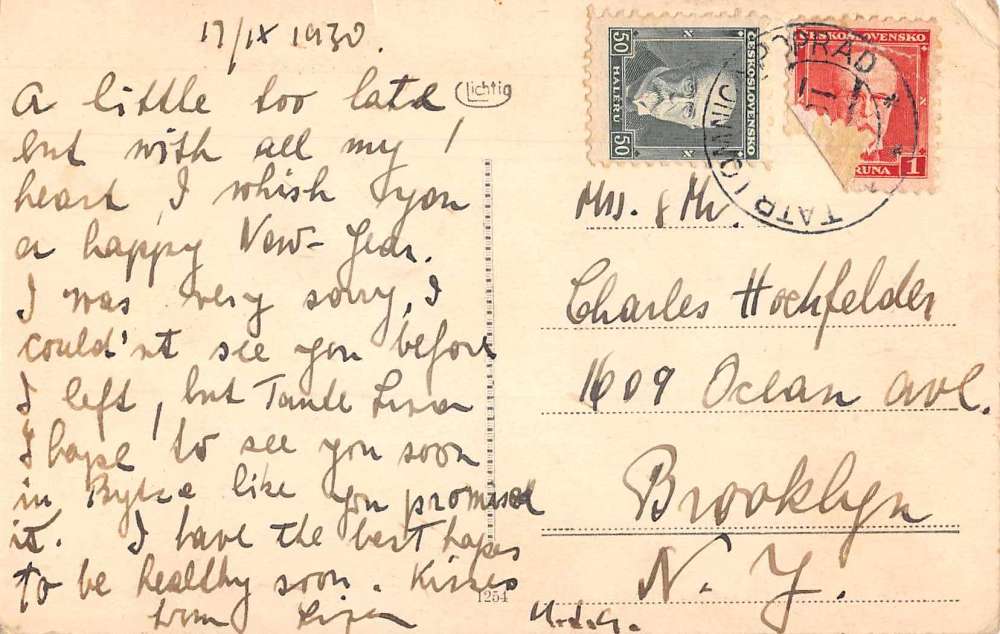 17/IX 1930.
A little too late
but with all my
heart, I whish you
a happy New-Year.
I was very sorry, I
could'nt see you before
I left, but Tante
I hope to see you soon
in Bytca like you promised
it. I have the best hopes
to be healthy soon. Kisses
from
Lichtig
1254
50 HALÉŘŮ 50
ČESKOSLOVENSKO
ČESKOSLOVENSKO
RUNA 1
POPRAD
TATR
Mrs. & Mr.
Charles Hochfelder
1609 Ocean ave.
Brooklyn
N. Y.
U.S.A.